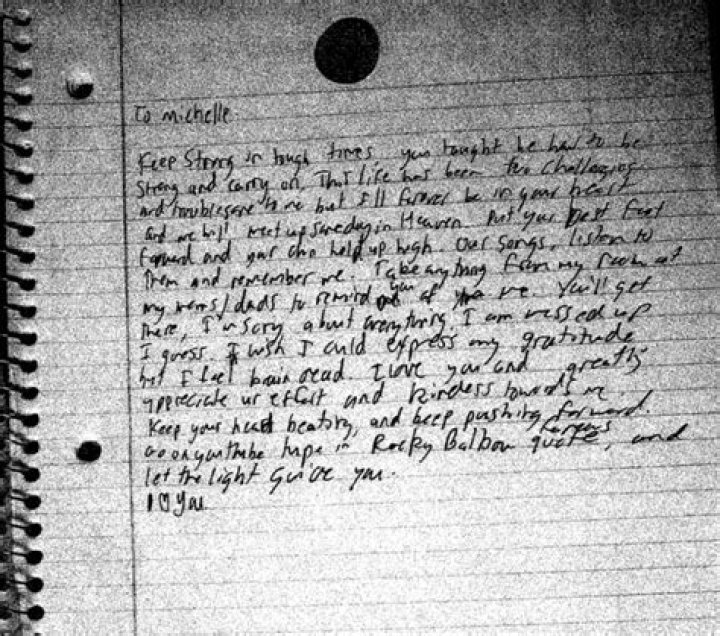 To Michelle
Keep Strong in tough times, you taught me how to be
Strong and carry on. This life has been too challenging
and troublesome to me but I'll forever be in your heart
and we will meet up someday in Heaven. Put your best foot
forward and your chin held up high. Our songs, listen to
them and remember me. Take anything from my room at
my moms/dads to remind you of me. You'll get
there, I'm sorry about everything. I am messed up
I guess. I wish I could express my gratitude
but I feel brain dead. I love you and greatly
appreciate ur effort and kindess towards me.
Keep your heart beating, and keep pushing forward.
Go on youtube type in Rocky Balboa famous quote, and
let the light guide you.
I ♡ You